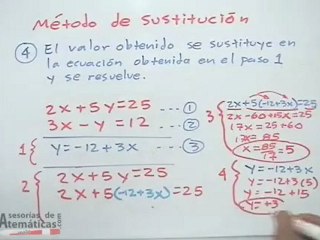 Método de sustitución
④ El valor obtenido se sustituye en
la ecuación obtenida en el paso 1
y se resuelve.
2x+5y=25 --- ①
3x-y=12 --- ②
1{ y=-12+3x ③
2{ 2x+5y=25
2x+5(-12+3x)=25
3{ 2x+5(-12+3x)=25
2x-60+15x=25
17x=25+60
x=85/17=5
4{ y=-12+3x
y=-12+3(5)
y=-12+15
y=+3
asesorías de
Matemáticas.com